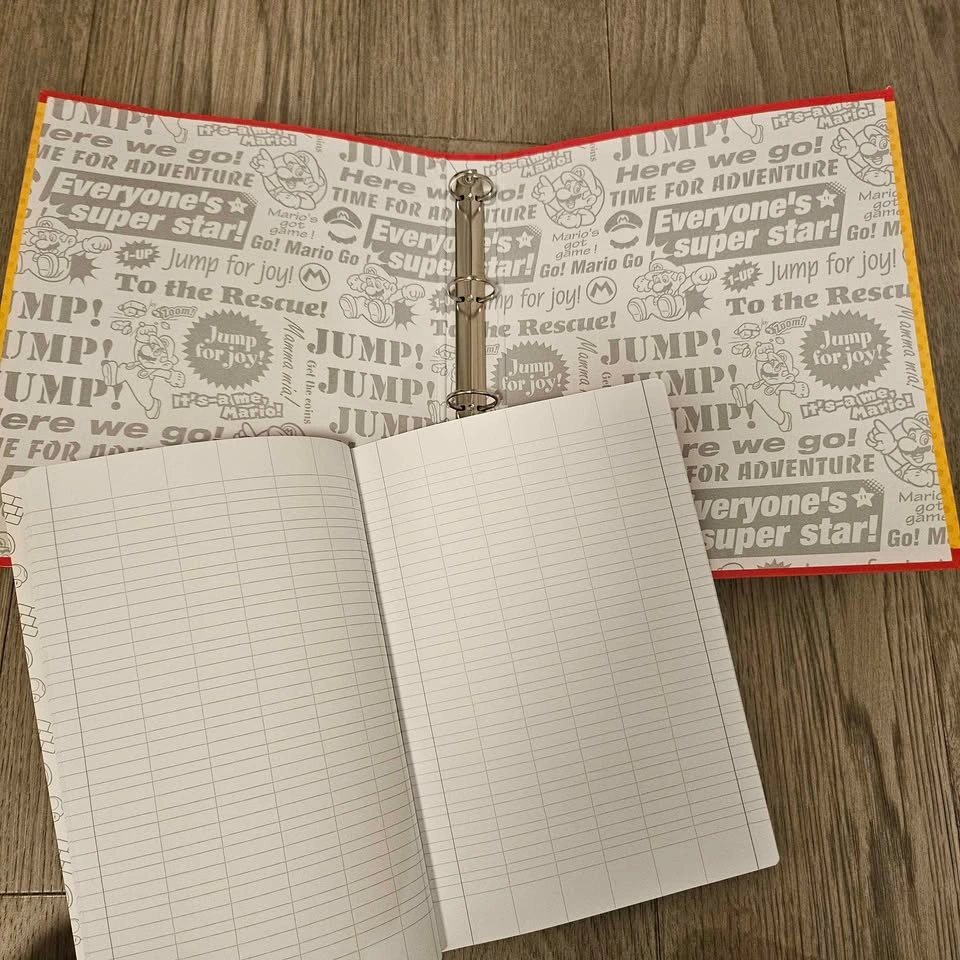 JUMP!
It's-a me, Mario!
Here we go!
TIME FOR ADVENTURE
Everyone's super star!
Mario's got game!
Go! Mario Go!
1-UP
Jump for joy!
M
To the Rescue!
JUMP!
JUMP!
JUMP!
Zoom!
Jump for joy!
Mamma mia!
Get the coins
It's-a me, Mario!
Here we go!
JUMP!
It's-a me, Mario!
Here we go!
TIME FOR ADVENTURE
Everyone's super
Mario's got game!
Go! Mario Go
Jump for joy!
M
To the Rescue!
JUMP!
JUMP!
JUMP!
Jump for joy!
Mamma
JUMP!
It's-a me, Mario!
Here we go!
TIME FOR ADVENTURE
Everyone's super star!
Mario's got game
Go!
1-UP
Jump for joy!
To the Rescu
JUMP!
JUMP!
Zoom!
Jump for joy!
Mamma
It's-a me, Mario!
re we go!
FOR ADVENTURE
veryone's super star!
Mario got game
Go! M